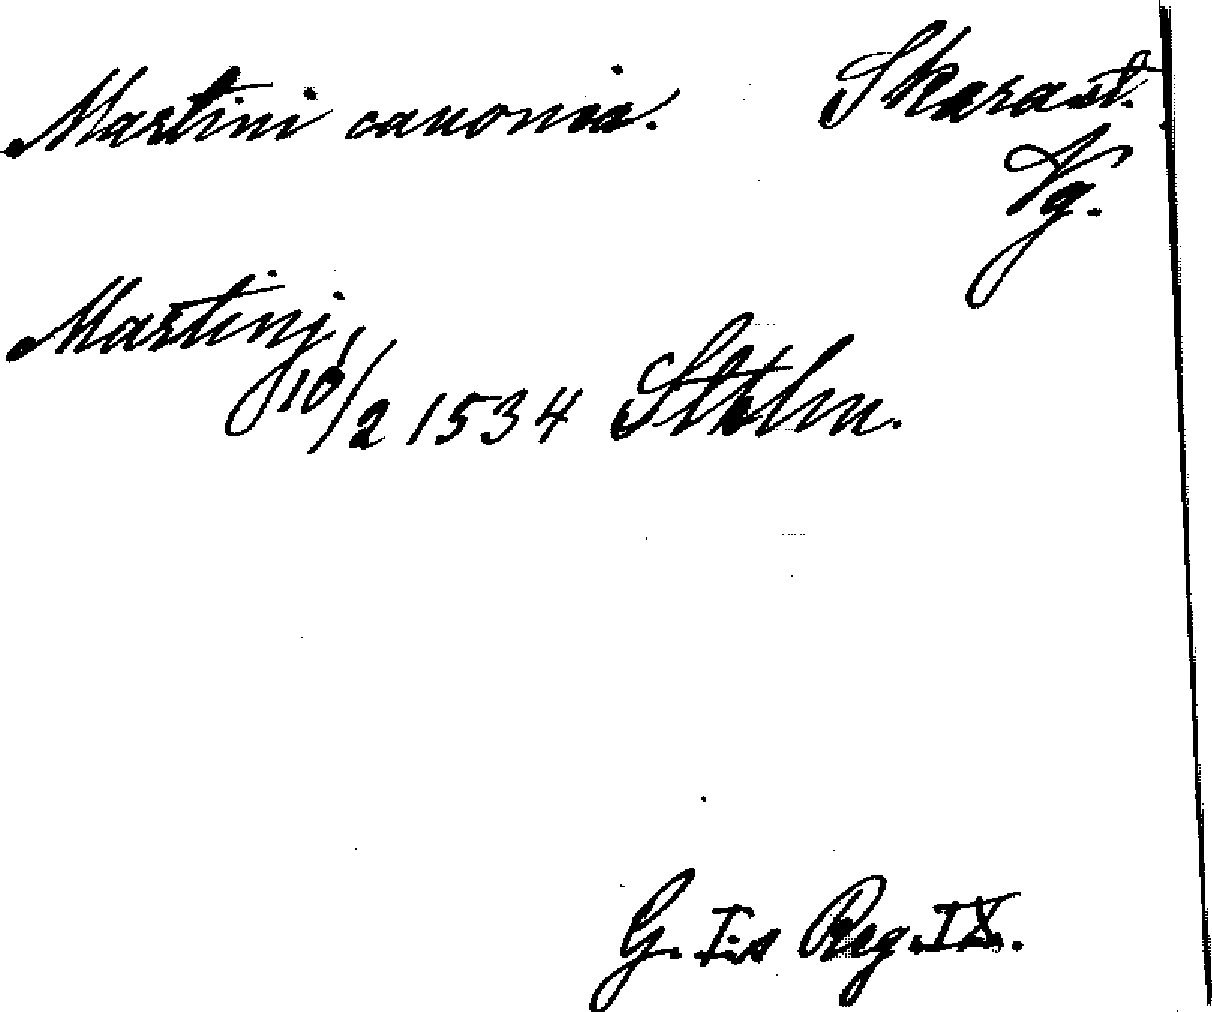 Martini canonia. Skara st.
Vg.
Martinj,
10/2 1534 Sthlm.
G. I:s Reg. IX.